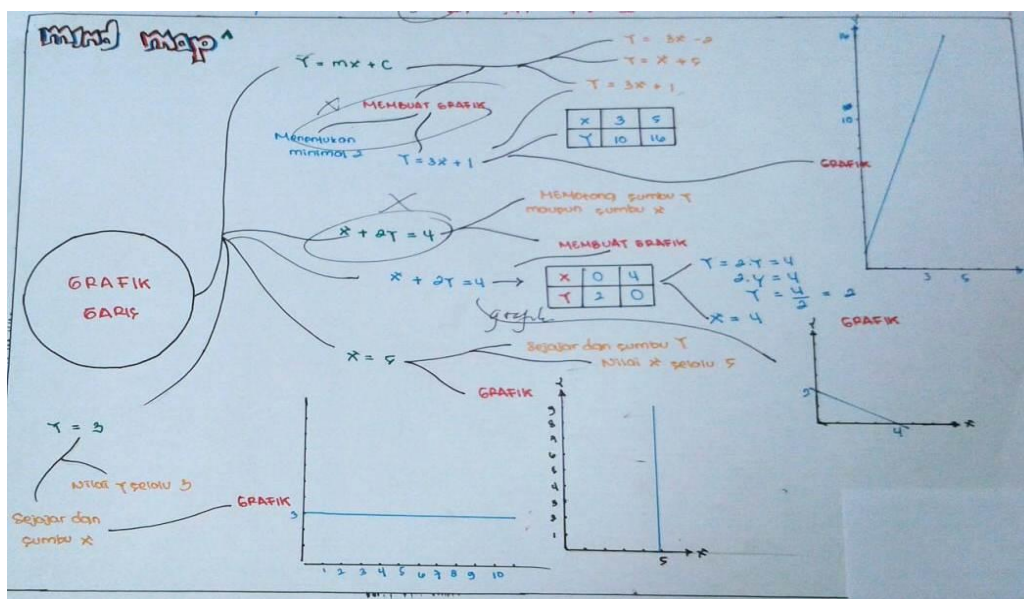 MIND MAP
Y = mx + c
Y = 3x - 2
Y = x + 5
Y = 3x + 1
MEMBUAT GRAFIK
Menentukan
minimal 2
Y = 3x + 1
X 3 5
Y 10 16
GRAFIK
10
3 5
GRAFIK
GARIS
x + 2Y = 4
MEMotong sumbu Y
maupun sumbu x
MEMBUAT GRAFIK
x + 2Y = 4
X 0 4
Y 2 0
Y = 2.Y = 4
2.y = 4
Y = 4/2 = 2
X = 4
grafik
GRAFIK
Y
2
4 X
X = 5
Sejajar dan sumbu Y
Nilai x selalu 5
GRAFIK
Y
9
8
7
6
5
4
3
2
1
5 X
Y = 3
Nilai Y selalu 3
Sejajar dan
sumbu x
GRAFIK
3
1 2 3 4 5 6 7 8 9 10